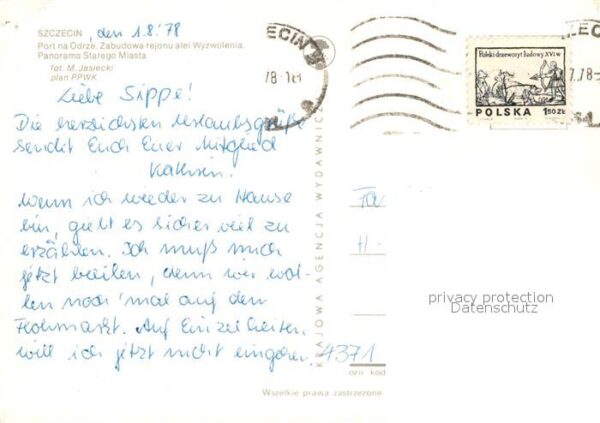 SZCZECIN, den 1.8.'78
Port na Odrze. Zabudowa rejonu alei Wyzwolenia.
Panorama Starego Miasta
fot. M. Jasiecki
plan PPWK
Liebe Sippe!
Die herzlichsten Urlaubsgrüße
sendet Euch Euer Mitglied
Kathrin.
Wenn ich wieder zu Hause
bin, giebt es sicher viel zu
erzählen. Ich muß mich
jetzt beeilen, denn wir wol-
len noch 'mal auf den
Flohmarkt. Auf Einzelheiten
will ich jetzt nicht eingehen.
KRAJOWA AGENCJA WYDAWNICZ
Wszelkie prawa zastrzeżone
ZECIN
78-18
ZEC
7.78
Polski drzeworyt ludowy XVI w.
POLSKA 1,50 ZŁ
Fa
H-
4371
privacy protection
Datenschutz